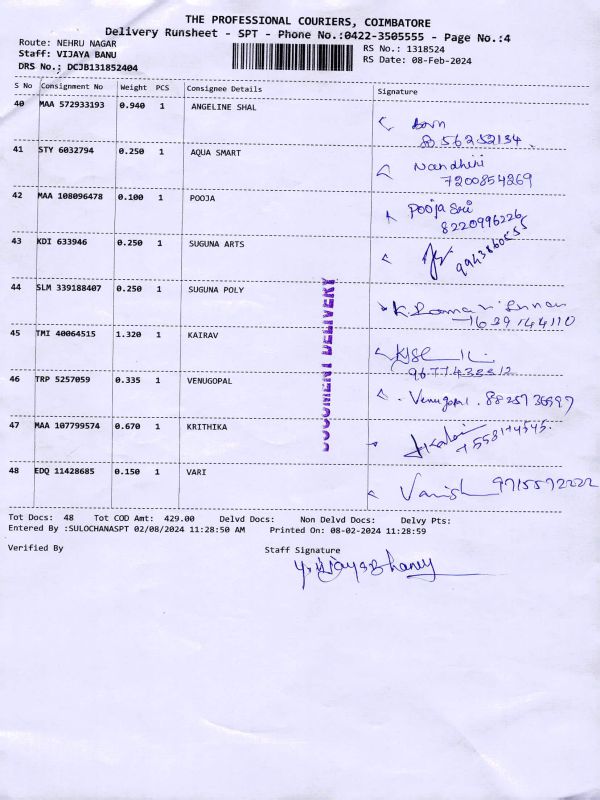 THE PROFESSIONAL COURIERS, COIMBATORE
Delivery Runsheet - SPT - Phone No.:0422-3505555 - Page No.:4
Route: NEHRU NAGAR RS No.: 1318524
Staff: VIJAYA BANU RS Date: 08-Feb-2024
DRS No.: DCJB131852404
S No Consignment No Weight PCS Consignee Details Signature
40 MAA 572933193 0.940 1 ANGELINE SHAL
41 STY 6032794 0.250 1 AQUA SMART Nandhini
7200854269
42 MAA 108096478 0.100 1 POOJA Pooja Sri
8220996226
43 KDI 633946 0.250 1 SUGUNA ARTS
44 SLM 339188407 0.250 1 SUGUNA POLY
45 TMI 40064515 1.320 1 KAIRAV
46 TRP 5257059 0.335 1 VENUGOPAL Venugopal.
47 MAA 107799574 0.670 1 KRITHIKA
48 EDQ 11428685 0.150 1 VARI 9715572222
DOCUMENT DELIVERY
Tot Docs: 48 Tot COD Amt: 429.00 Delvd Docs: Non Delvd Docs: Delvy Pts:
Entered By :SULOCHANASPT 02/08/2024 11:28:50 AM Printed On: 08-02-2024 11:28:59
Verified By Staff Signature